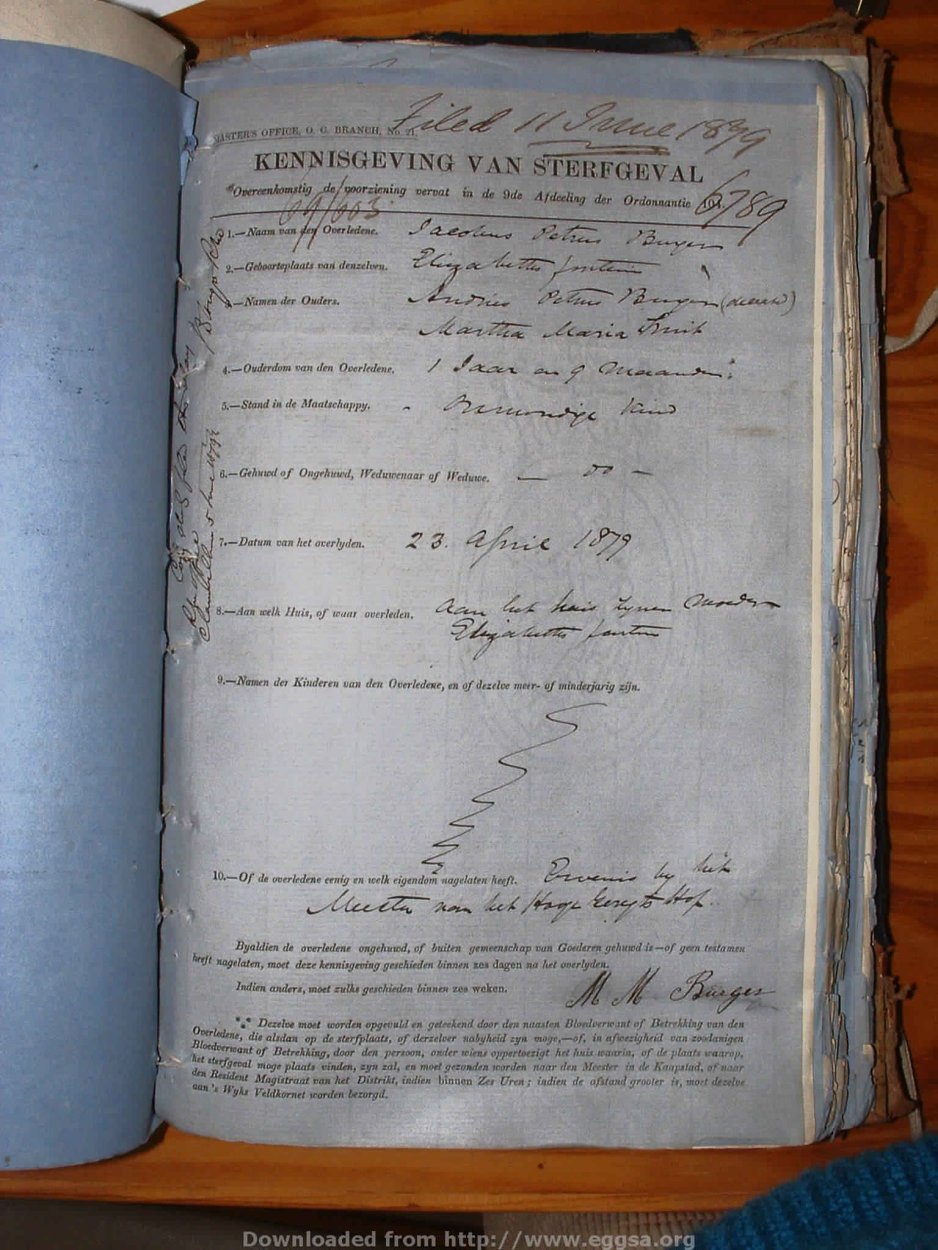 Filed 11 June 1879
MASTER'S OFFICE, O. C. BRANCH, No. 21.
KENNISGEVING VAN STERFGEVAL
Overeenkomstig de voorziening vervat in de 9de Afdeeling der Ordonnantie 104.
6789
1.—Naam van den Overledene. Jacobus Petrus Burger
2.—Geboorteplaats van denzelven. Elizabeths fontein
3.—Namen der Ouders. Andries Petrus Burger
Martha Maria Smit
4.—Ouderdom van den Overledene. 1 Jaar en 9 Maanden
5.—Stand in de Maatschappy. Onmondige Kind
6.—Gehuwd of Ongehuwd, Weduwenaar of Weduwe. — do —
7.—Datum van het overlyden. 23 April 1879
8.—Aan welk Huis, of waar overleden. Aan het huis zyner Moeder
Elizabeths fontein
9.—Namen der Kinderen van den Overledene, en of dezelve meer- of minderjarig zijn.
10.—Of de overledene eenig en welk eigendom nagelaten heeft. Erfenis by het
Meester van het Hooge Geregts Hof.
Byaldien de overledene ongehuwd, of buiten gemeenschap van Goederen gehuwd is—of geen testamen
heeft nagelaten, moet deze kennisgeving geschieden binnen zes dagen na het overlyden.
Indien anders, moet zulks geschieden binnen zes weken.
M M Burger
Dezelve moet worden opgevuld en geteekend door den naasten Bloedverwant of Betrekking van den
Overledene, die alsdan op de sterfplaats, of derzelver nabyheid zyn moge,—of, in afwezigheid van zoodanigen
Bloedverwant of Betrekking, door den persoon, onder wiens oppertoezigt het huis waarin, of de plaats waarop,
het sterfgeval moge plaats vinden, zyn zal, en moet gezonden worden naar den Meester in de Kaapstad, of naar
den Resident Magistraat van het Distrikt, indien binnen Zes Uren; indien de afstand grooter is, moet dezelve
aan 's Wyks Veldkornet worden bezorgd.
Downloaded from http://www.eggsa.org